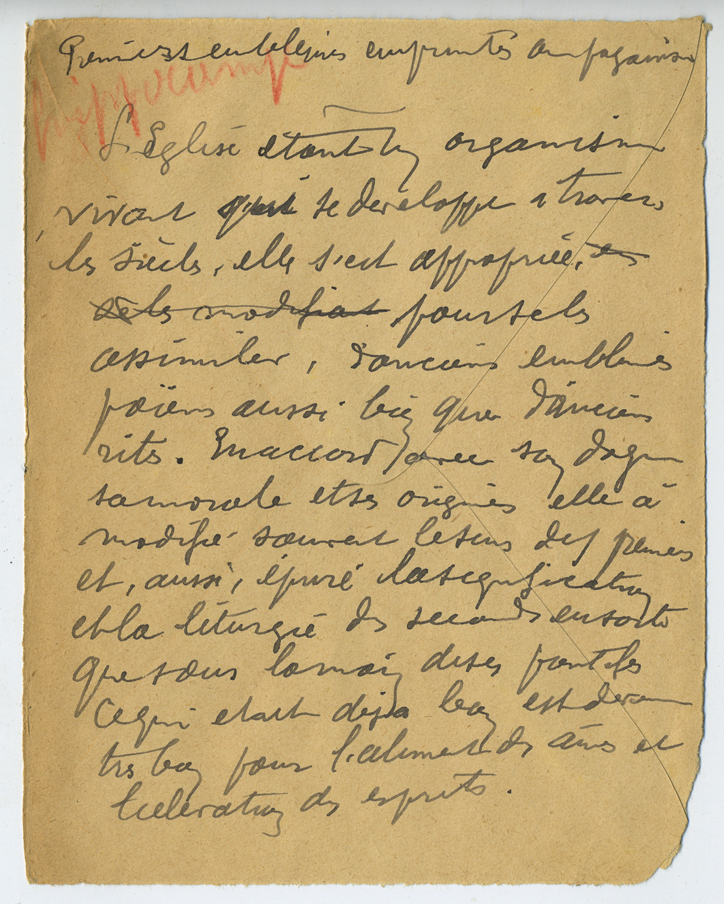 Premiers emblèmes empruntés au paganisme
hippocampe
L'Eglise étant un organisme
vivant qui se developpe à travers
les siècles, elle s'est appropriée, en
se les modifiant pour se les
assimiler, d'anciens emblèmes
païens aussi bien que d'anciens
rites. En accord avec son dogme
sa morale et ses origines elle a
modifié souvent le sens des premiers
et, aussi, épuré la signification
et la liturgie des seconds en sorte
que sous la main de ses pontifes
ce qui etait déjà bon est devenu
très bon pour l'aliment des âmes et
l'élévation des esprits.